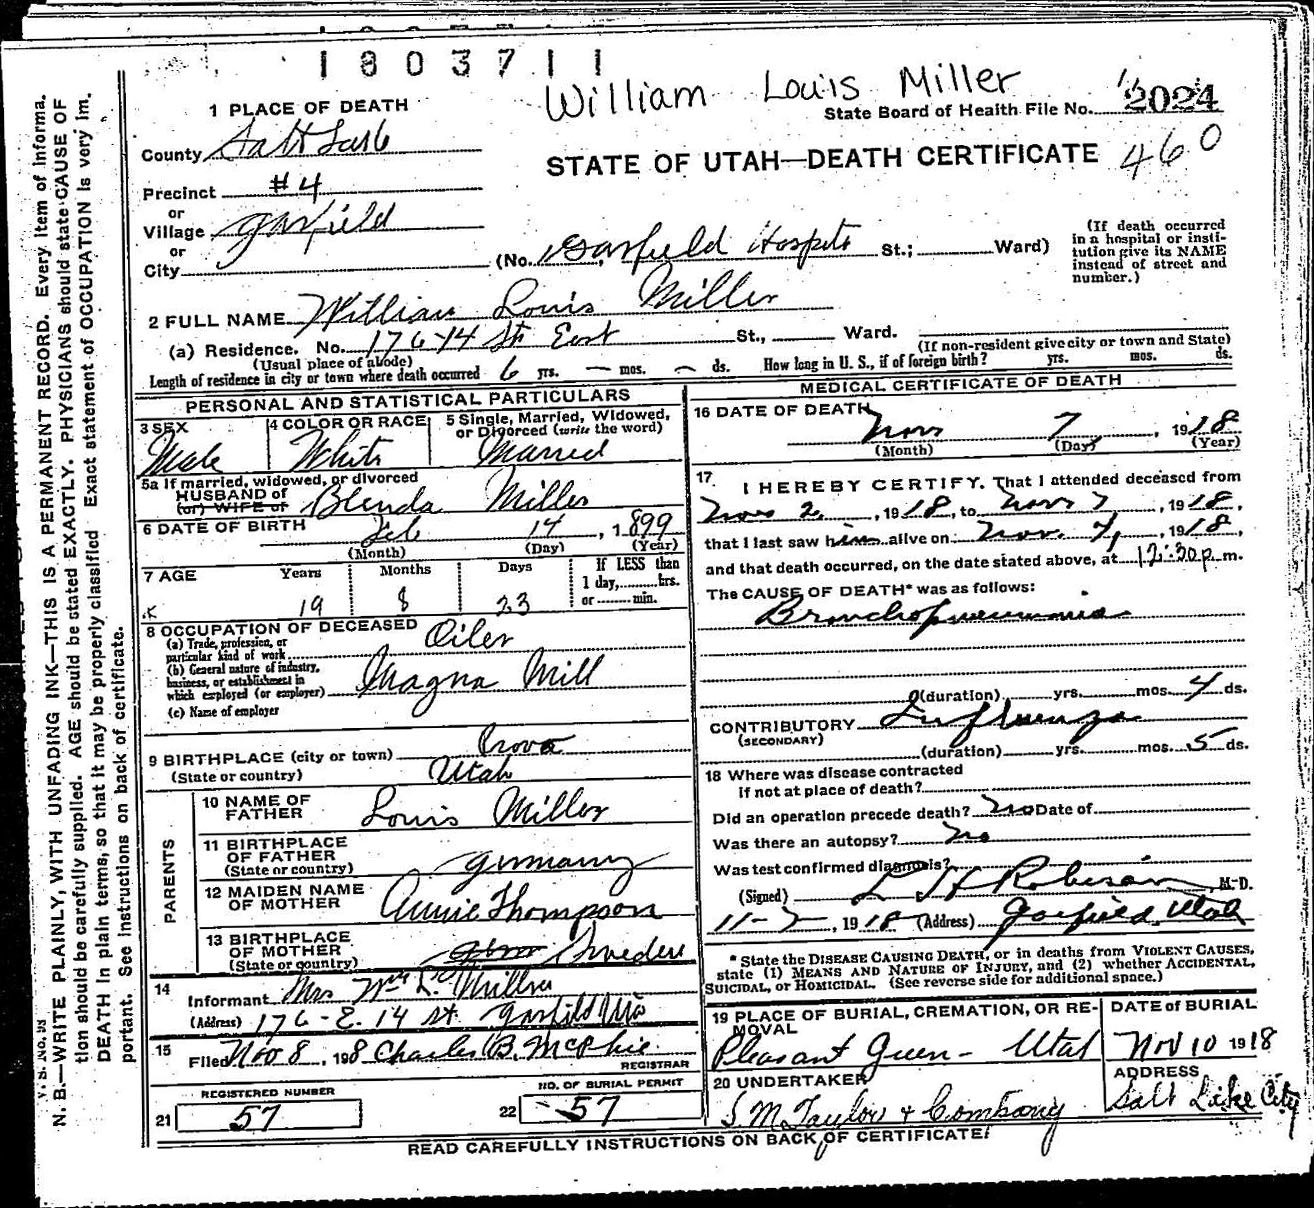 1803711
William Louis Miller
State Board of Health File No. 2024
460
1 PLACE OF DEATH
County Salt Lake
STATE OF UTAH—DEATH CERTIFICATE
Precinct #4
or
Village Garfield
or
City
(No. Garfield Hospital St.; Ward)
(If death occurred in a hospital or insti-
tution give its NAME
instead of street and
number.)
2 FULL NAME William Louis Miller
(a) Residence. No. 176-14 St East St., Ward.
(Usual place of abode)
(If non-resident give city or town and State)
Length of residence in city or town where death occurred 6 yrs. — mos. — ds. How long in U. S., if of foreign birth? yrs. mos. ds.
PERSONAL AND STATISTICAL PARTICULARS
3 SEX
Male
4 COLOR OR RACE
White
5 Single, Married, Widowed,
or Divorced (write the word)
Married
5a If married, widowed, or divorced
HUSBAND of
(or) WIFE of Blenda Miller
6 DATE OF BIRTH Feb 14, 1899
(Month) (Day) (Year)
7 AGE Years Months Days
19 8 23
If LESS than
1 day, hrs.
or min.
8 OCCUPATION OF DECEASED
(a) Trade, profession, or
particular kind of work Oiler
(b) General nature of industry,
business, or establishment in
which employed (or employer) Magna Mill
(c) Name of employer
9 BIRTHPLACE (city or town) Provo
(State or country) Utah
PARENTS
10 NAME OF
FATHER Louis Miller
11 BIRTHPLACE
OF FATHER
(State or country) Germany
12 MAIDEN NAME
OF MOTHER Annie Thompson
13 BIRTHPLACE
OF MOTHER
(State or country) Sweden
14
Informant Mrs Wm L. Miller
(Address) 176-E. 14 St. Garfield Uta
15
Filed Nov 8, 1918 Charles B. McPhie
REGISTRAR
REGISTERED NUMBER
21 57
NO. OF BURIAL PERMIT
22 57
MEDICAL CERTIFICATE OF DEATH
16 DATE OF DEATH
Nov 7, 1918
(Month) (Day) (Year)
17
I HEREBY CERTIFY, That I attended deceased from
Nov 2, 1918, to Nov 7, 1918,
that I last saw him alive on Nov. 7, 1918,
and that death occurred, on the date stated above, at 12:30 p.m.
The CAUSE OF DEATH* was as follows:
Bronchopneumonia
(duration) yrs. mos. 4 ds.
CONTRIBUTORY Influenza
(SECONDARY)
(duration) yrs. mos. 5 ds.
18 Where was disease contracted
if not at place of death?
Did an operation precede death? no Date of
Was there an autopsy? no
Was test confirmed diagnosis?
(Signed) L H Robinson M-D.
11-7, 1918 (Address) Garfield, Utah
* State the DISEASE CAUSING DEATH, or in deaths from VIOLENT CAUSES,
state (1) MEANS AND NATURE OF INJURY, and (2) whether ACCIDENTAL,
SUICIDAL, or HOMICIDAL. (See reverse side for additional space.)
19 PLACE OF BURIAL, CREMATION, OR RE-
MOVAL
Pleasant Green - Utah
DATE OF BURIAL
Nov 10 1918
20 UNDERTAKER
S. M. Taylor & Company
ADDRESS
Salt Lake City
READ CAREFULLY INSTRUCTIONS ON BACK OF CERTIFICATE!
V. S. No.
N. B.—WRITE PLAINLY, WITH UNFADING INK—THIS IS A PERMANENT RECORD. Every item of informa-
tion should be carefully supplied. AGE should be stated EXACTLY. PHYSICIANS should state CAUSE OF
DEATH in plain terms, so that it may be properly classified Exact statement of OCCUPATION is very im-
portant. See instructions on back of certificate.